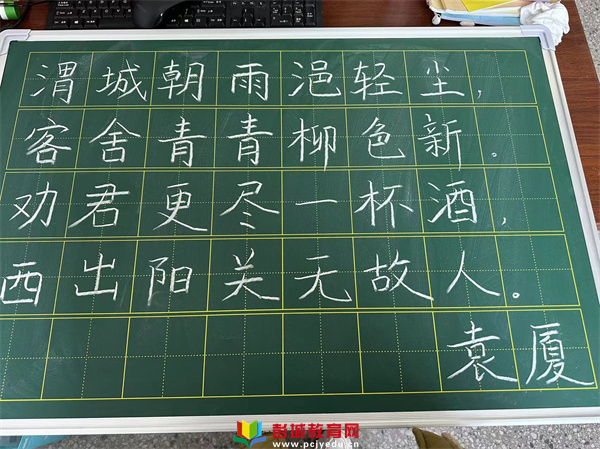 渭城朝雨浥轻尘,
客舍青青柳色新。
劝君更尽一杯酒,
西出阳关无故人。
袁厦
彭城教育网
www.pcjyedu.cn